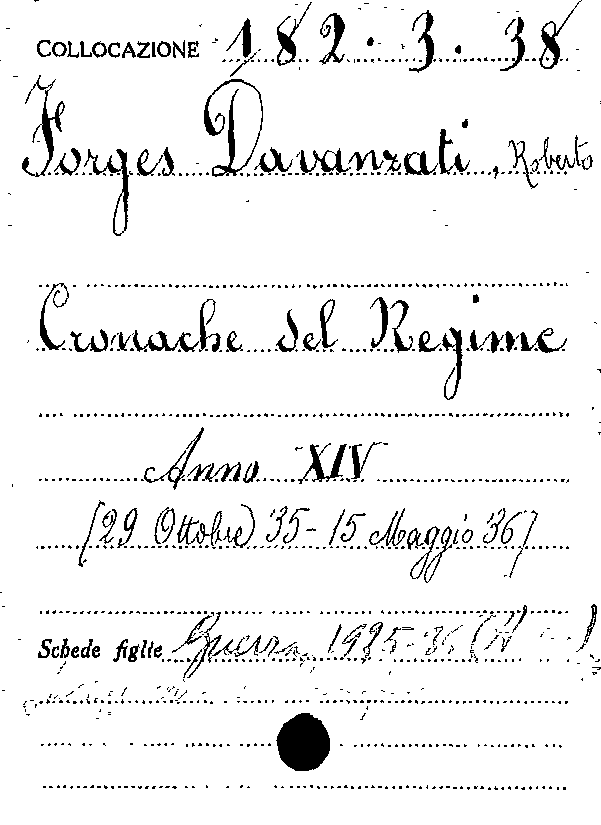 COLLOCAZIONE 182.3.38
Forges Davanzati, Roberto
Cronache del Regime
Anno XIV
[29 Ottobre 35 - 15 Maggio 36]
Schede figlie Guerra, 1935-36 (